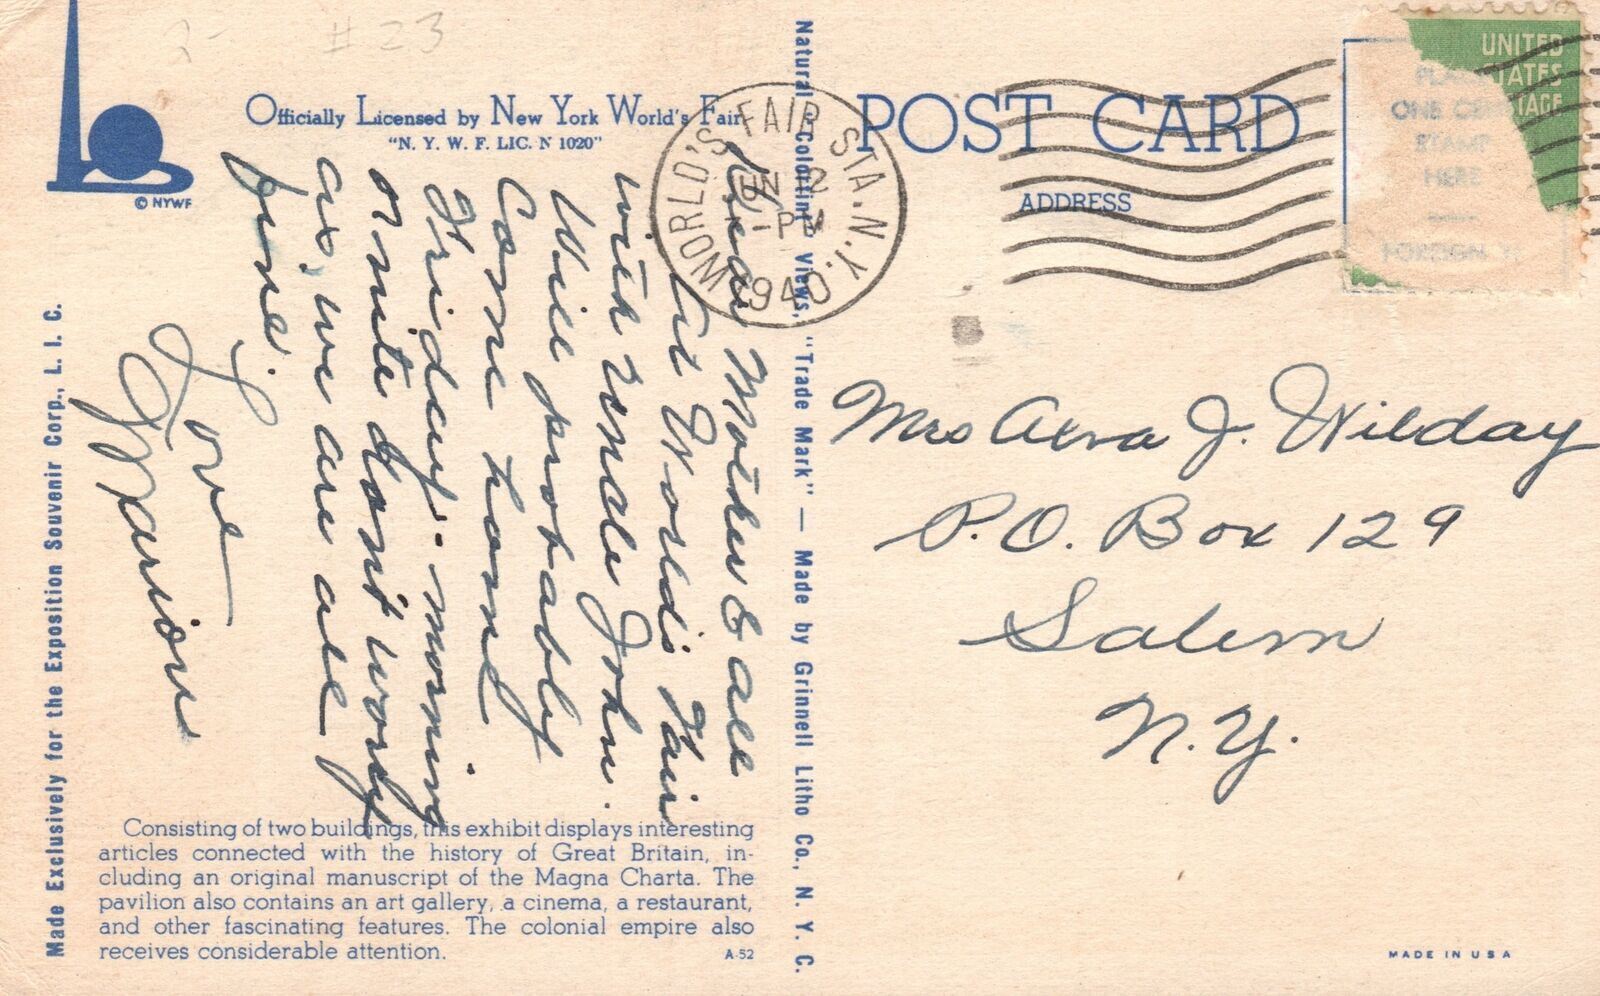 2- #23
© NYWF
Officially Licensed by New York World's Fair
"N. Y. W. F. LIC. N 1020"
Made Exclusively for the Exposition Souvenir Corp., L. I. C.
Dear Mother & all
At World's Fair
with John.
Will probably
Come home
Friday - morning
or nite dont worry
as, we are all
fine.
Love
Marion
Consisting of two buildings, this exhibit displays interesting
articles connected with the history of Great Britain, in-
cluding an original manuscript of the Magna Charta. The
pavilion also contains an art gallery, a cinema, a restaurant,
and other fascinating features. The colonial empire also
receives considerable attention.
A-52
Natural Colortint views, "Trade Mark" — Made by Grinnell Litho Co., N. Y. C.
WORLD'S FAIR STA. N.Y.
JUN 12
1 - PM
1940
POST CARD
ADDRESS
UNITED
STATES
POSTAGE
PLACE
ONE CENT
STAMP
HERE
FOREIGN
Mrs Alva J. Wilday
P.O. Box 129
Salem
N.Y.
MADE IN USA